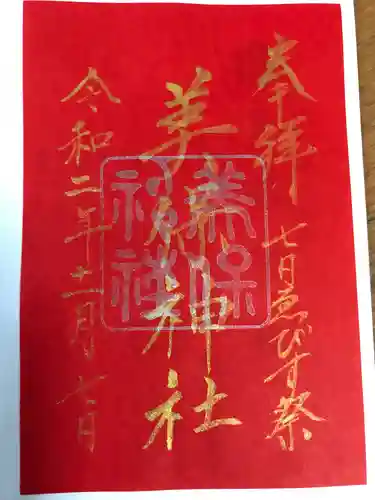 奉拝 七日ゑびす祭
美保神社
令和二年十二月七日
美保神社